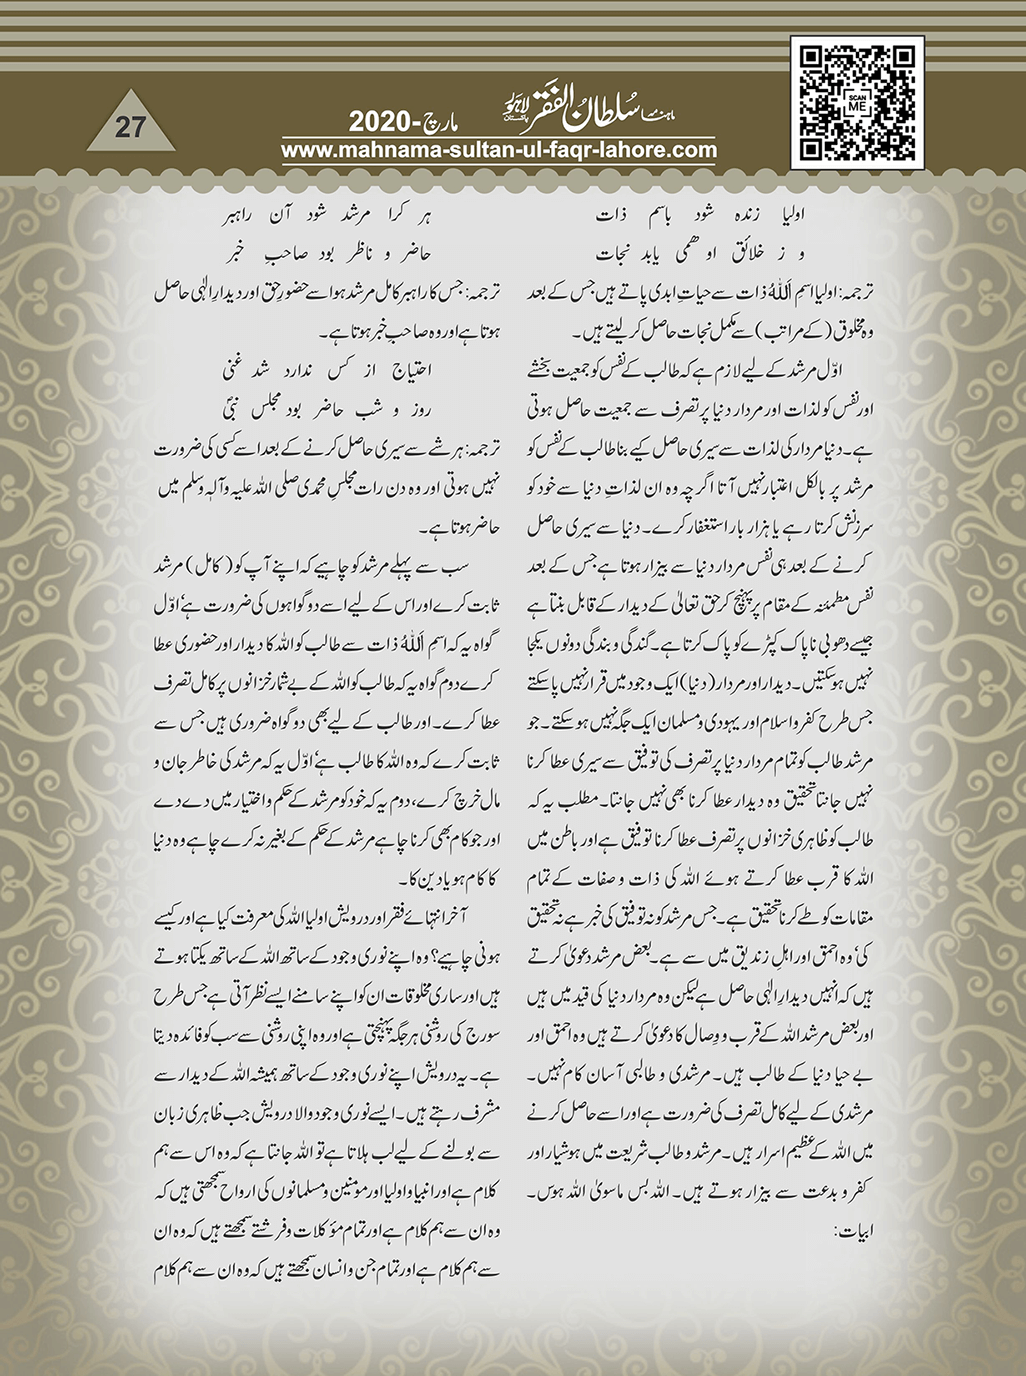 27
ماہنامہ سلطان الفقر لاہور پاکستان
مارچ-2020
www.mahnama-sultan-ul-faqr-lahore.com
SCAN
ME
اولیا زندہ شود باسم ذات
و ز خلائق او ھمی یابد نجات
ترجمہ: اولیا اسمِ اَللہُ ذات سے حیاتِ ابدی پاتے ہیں جس کے بعد
وہ مخلوق (کے مراتب) سے مکمل نجات حاصل کر لیتے ہیں۔
اوّل مرشد کے لیے لازم ہے کہ طالب کے نفس کو جمعیت بخشے
اور نفس کو لذات اور مردار دنیا پر تصرف سے جمعیت حاصل ہوتی
ہے۔ دنیا مردار کی لذات سے سیری حاصل کیے بنا طالب کے نفس کو
مرشد پر بالکل اعتبار نہیں آتا اگرچہ وہ ان لذاتِ دنیا سے خود کو
سرزنش کرتا رہے یا ہزار بار استغفار کرے۔ دنیا سے سیری حاصل
کرنے کے بعد ہی نفس مردار دنیا سے بیزار ہوتا ہے جس کے بعد
نفس مطمئنہ کے مقام پر پہنچ کر حق تعالیٰ کے دیدار کے قابل بنتا ہے
جیسے دھوبی ناپاک کپڑے کو پاک کرتا ہے۔ گندگی و بندگی دونوں یکجا
نہیں ہو سکتیں۔ دیدار اور مردار (دنیا) ایک وجود میں قرار نہیں پا سکتے
جس طرح کفر و اسلام اور یہودی و مسلمان ایک جگہ نہیں ہو سکتے۔ جو
مرشد طالب کو تمام مردار دنیا پر تصرف کی توفیق سے سیری عطا کرنا
نہیں جانتا تحقیق وہ دیدار عطا کرنا بھی نہیں جانتا۔ مطلب یہ کہ
طالب کو ظاہری خزانوں پر تصرف عطا کرنا توفیق ہے اور باطن میں
اللہ کا قرب عطا کرتے ہوئے اللہ کی ذات و صفات کے تمام
مقامات کو طے کرنا تحقیق ہے۔ جس مرشد کو نہ توفیق کی خبر ہے نہ تحقیق
کی‘ وہ احمق اور اہلِ زندیق میں سے ہے۔ بعض مرشد دعویٰ کرتے
ہیں کہ انہیں دیدارِ الٰہی حاصل ہے لیکن وہ مردار دنیا کی قید میں ہیں
اور بعض مرشد اللہ کے قرب و وصال کا دعویٰ کرتے ہیں وہ احمق اور
بے حیا دنیا کے طالب ہیں۔ مرشدی و طالبی آسان کام نہیں۔
مرشدی کے لیے کامل تصرف کی ضرورت ہے اور اسے حاصل کرنے
میں اللہ کے عظیم اسرار ہیں۔ مرشد و طالب شریعت میں ہوشیار اور
کفر و بدعت سے بیزار ہوتے ہیں۔ اللہ بس ماسویٰ اللہ ہوس۔
ابیات:
ہر کرا مرشد شود آن راہبر
حاضر و ناظر بود صاحبِ خبر
ترجمہ: جس کا راہبر کامل مرشد ہو اسے حضورِ حق اور دیدارِ الٰہی حاصل
ہوتا ہے اور وہ صاحبِ خبر ہوتا ہے۔
احتیاج از کس ندارد شد غنی
روز و شب حاضر بود مجلس نبیؐ
ترجمہ: ہر شے سے سیری حاصل کرنے کے بعد اسے کسی کی ضرورت
نہیں ہوتی اور وہ دن رات مجلسِ محمدی صلی اللہ علیہ وآلہٖ وسلم میں
حاضر ہوتا ہے۔
سب سے پہلے مرشد کو چاہیے کہ اپنے آپ کو (کامل) مرشد
ثابت کرے اور اس کے لیے اسے دو گواہوں کی ضرورت ہے‘ اوّل
گواہ یہ کہ اسمِ اَللہُ ذات سے طالب کو اللہ کا دیدار اور حضوری عطا
کرے دوم گواہ یہ کہ طالب کو اللہ کے بے شمار خزانوں پر کامل تصرف
عطا کرے۔ اور طالب کے لیے بھی دو گواہ ضروری ہیں جس سے
ثابت کرے کہ وہ اللہ کا طالب ہے‘ اوّل یہ کہ مرشد کی خاطر جان و
مال خرچ کرے، دوم یہ کہ خود کو مرشد کے حکم و اختیار میں دے دے
اور جو کام بھی کرنا چاہے مرشد کے حکم کے بغیر نہ کرے چاہے وہ دنیا
کا کام ہو یا دین کا۔
آخر انتہائے فقر اور درویش اولیا اللہ کی معرفت کیا ہے اور کیسے
ہونی چاہیے؟ وہ اپنے نوری وجود کے ساتھ اللہ کے ساتھ یکتا ہوتے
ہیں اور ساری مخلوقات ان کو اپنے سامنے ایسے نظر آتی ہے جس طرح
سورج کی روشنی ہر جگہ پہنچتی ہے اور وہ اپنی روشنی سے سب کو فائدہ دیتا
ہے۔ یہ درویش اپنے نوری وجود کے ساتھ ہمیشہ اللہ کے دیدار سے
مشرف رہتے ہیں۔ ایسے نوری وجود والا درویش جب ظاہری زبان
سے بولنے کے لیے لب ہلاتا ہے تو اللہ جانتا ہے کہ وہ اس سے ہم
کلام ہے اور انبیا و اولیا اور مومنین و مسلمانوں کی ارواح سمجھتی ہیں کہ
وہ ان سے ہم کلام ہے اور تمام مؤکلات و فرشتے سمجھتے ہیں کہ وہ ان
سے ہم کلام ہے اور تمام جن و انسان سمجھتے ہیں کہ وہ ان سے ہم کلام